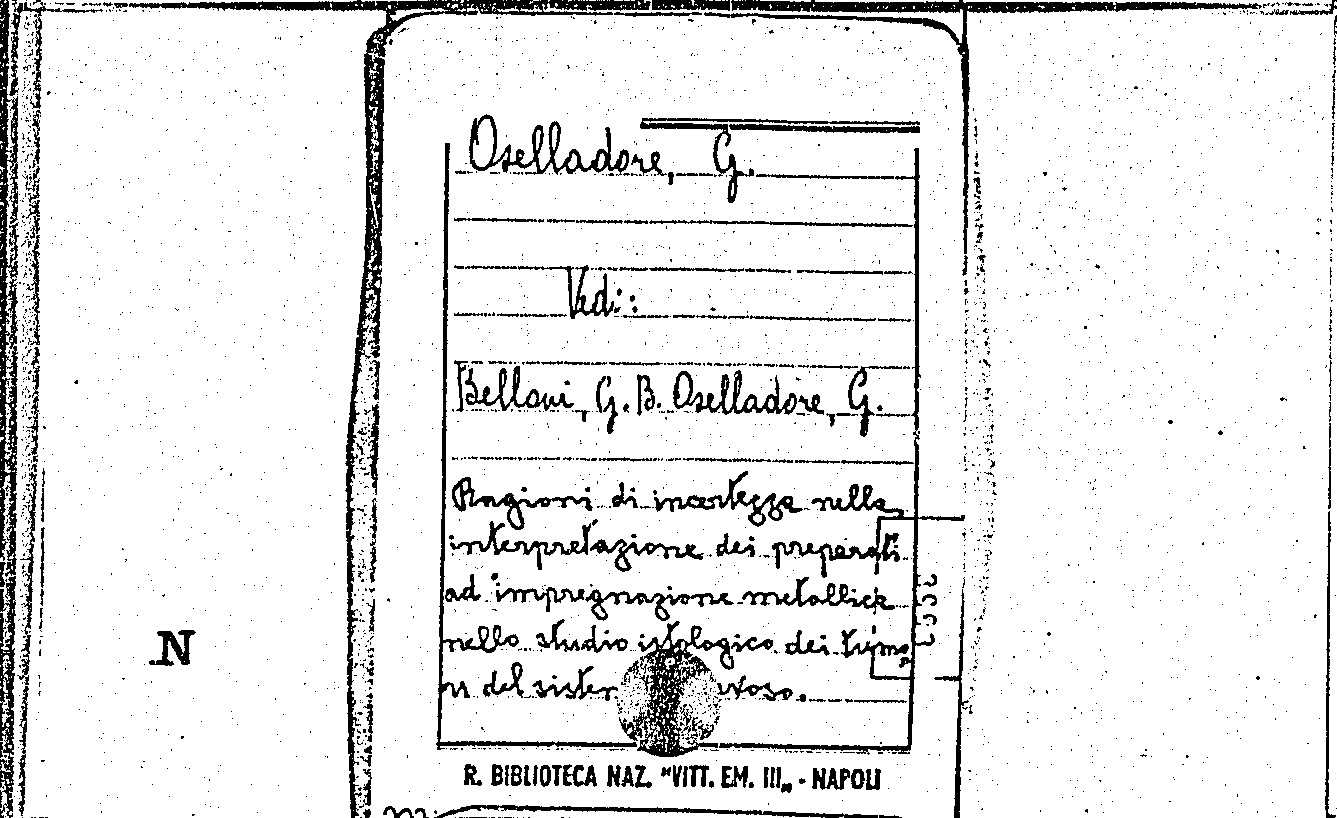 Oselladore, G.
Vedi:
Belloni, G. B. Oselladore, G.
Ragioni di incertezza nella
interpretazione dei preparati
ad impregnazione metallica
nello studio istologico dei tumo
ri del sistem
N
R. BIBLIOTECA NAZ. "VITT. EM. III„ - NAPOLI